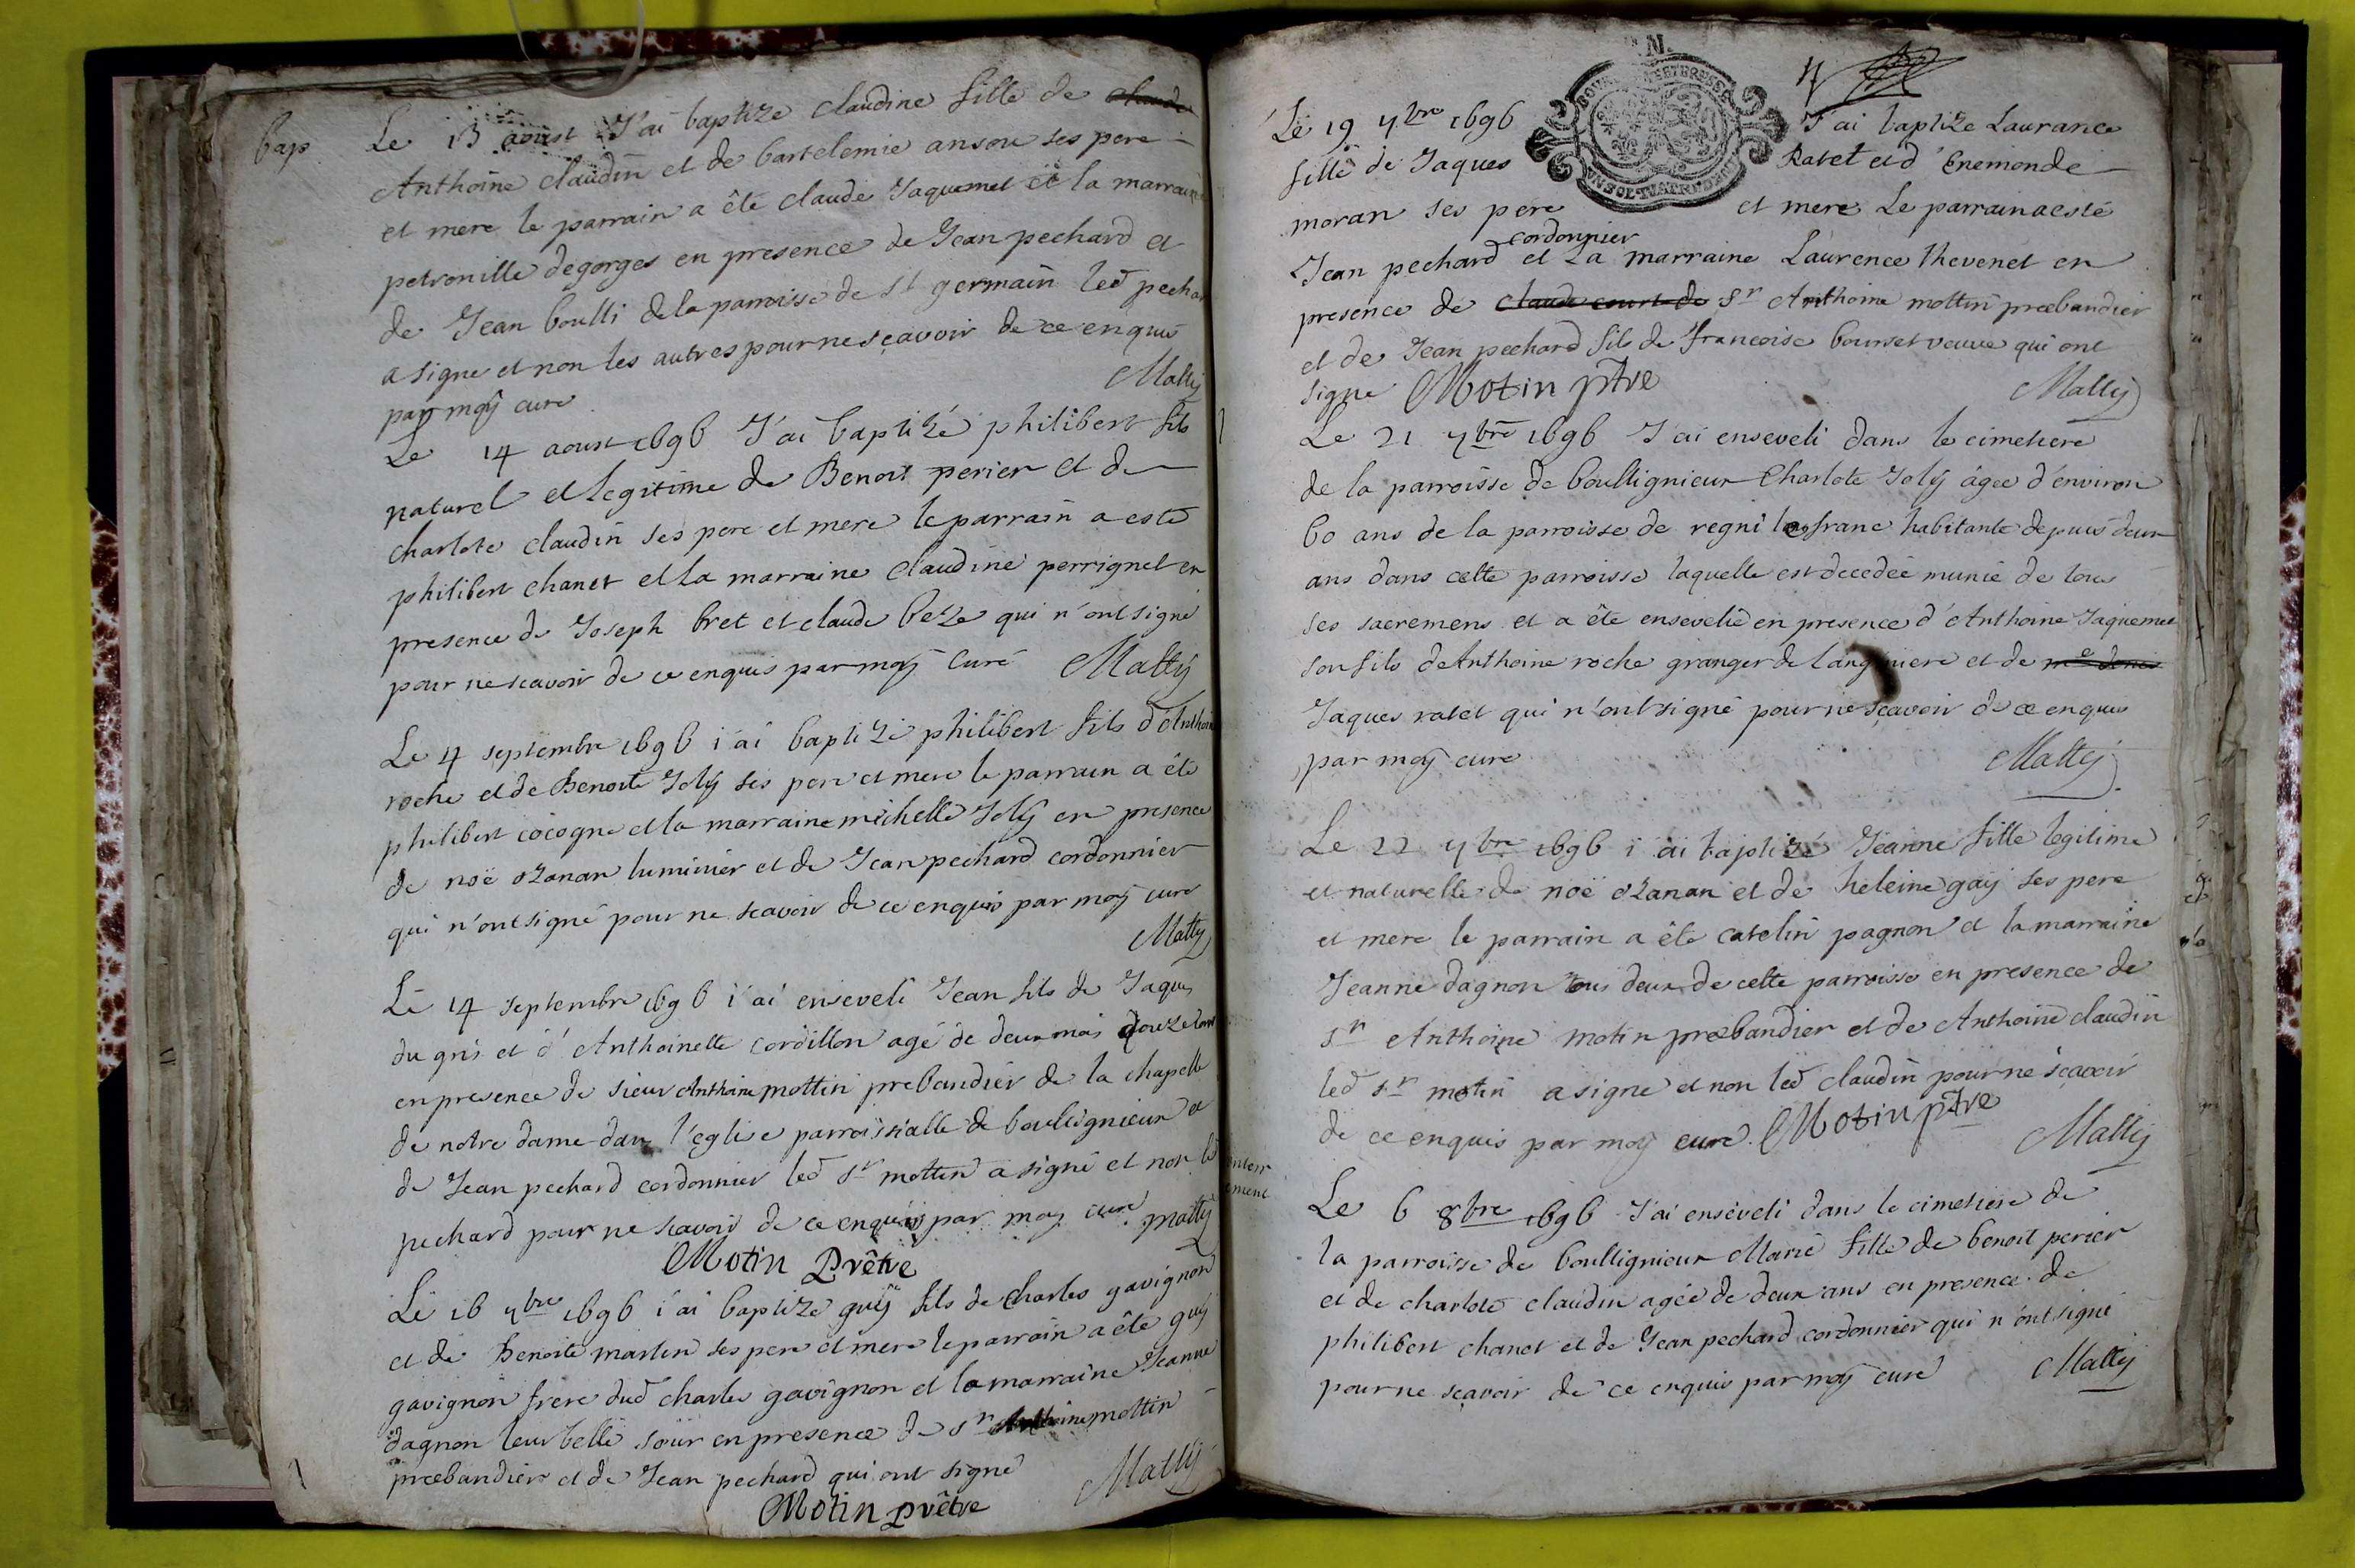 bap
Le 13 aoust J'ai baptize claudine fille de claude
Anthoine claudin et de bartelemie ansou ses pere
et mere le parrain a êté claude Jaquemet et la marraine
petronille degorges en presence de Jean pechard et
de Jean boulli de la parroisse de st germain led pechar
a signe et non les autres pour ne sçavoir de ce enquis
par moÿ curé
Mallÿ
Le 14 aoust 1696 J'ai baptizé philibert fils
naturel et legitime de Benoit perier et de
charlote claudin ses pere et mere le parrain a esté
philibert chanet et la marraine claudine perrignet en
presence de Joseph bret et claude beze qui n'ont signé
pour ne scavoir de ce enquis par moÿ Curé Mallÿ
Le 4 septembre 1696 i'ai baptizé philibert fils d'Anthoi
roche et de Benoite Jolÿ ses pere et mere le parrain a êté
philibert cocogne et la marraine michelle Jolÿ en presence
de noë ozanan luminier et de Jean pechard cordonnier
qui n'ont signé pour ne scavoir de ce enquis par moÿ curé
Mallÿ
Le 14 septembre 1696 i'ai enseveli Jean fils de Jaques
du gris et d'Anthoinette cordillon agé de deux mois douze
en presence de sieur Anthoine mottin prebandier de la chapelle
de notre dame dans l'eglise parroissialle de boulignieux et
de Jean pechard cordonnier led sr mottin a signé et non led
pechard pour ne scavoir de ce enquis par moy curé mallÿ
Motin Prêtre
Le 16 7bre 1696 i'ai baptize guÿ fils de charles gavignon
et de Benoite martin ses pere et mere le parrain a êté guÿ
gavignon frere dud charles gavignon et la marraine Jeanne
dagnon leur belle sœur en presence de sr Anthoine mottin
præbandier et de Jean pechard qui ont signé
Mallÿ
Motin prêtre
4
Le 19 7bre 1696 J'ai baptize Laurance
fille de Jaques Ratet et d'Enemonde
moran ses pere et mere Le parrain a esté
cordonnier
Jean pechard et La marraine Laurence thevenet en
presence de claude court de Sr Anthoine mottin præbandier
et de Jean pechard fils de francoise bourset veuve qui ont
signe Motin ptre Mallÿ
Le 21 7bre 1696 J'ai enseveli dans le cimetiere
de la parroisse de boullignieux Charlote Jolÿ âgée d'environ
60 ans de la parroisse de regni le franc habitante depuis deux
ans dans cette parroisse laquelle est decedée munie de tous
ses sacremens et a êté ensevelie en presence d'Anthoine Jaquemet
son fils d'Anthoine roche granger de langiniere et de me denis
Jaques ratet qui n'ont signé pour ne sçavoir de ce enquis
par moÿ curé
Mallÿ
Le 22 7bre 1696 i'ai baptizé Jeanne fille legitime
et naturelle de noë ozanan et de heleine gaÿ ses pere
et mere le parrain a êté catelin pagnon et la marraine
Jeanne dagnon tous deux de cette parroisse en presence de
sr Anthoine motin præbandier et de Anthoine claudin
led sr motin a signe et non led claudin pour ne sçavoir
de ce enquis par moy curé Motin ptre
Mallÿ
enterr
ement
Le 6 8bre 1696 J'ai enseveli dans le cimetiere de
la parroisse de boullignieux Marie fille de benoit perier
et de charlote claudin agée de deux ans en presence de
philibert chanet et de Jean pechard cordonnier qui n'ont signé
pour ne sçavoir de ce enquis par moÿ curé Mallÿ